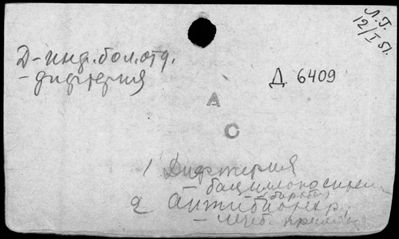 Л.Г.
12/I 51.
Д-инф.бол.отд.
-дифтерия
Д 6409
А
С
1 Дифтерия
- бациллоносители
2 Антибиотер.